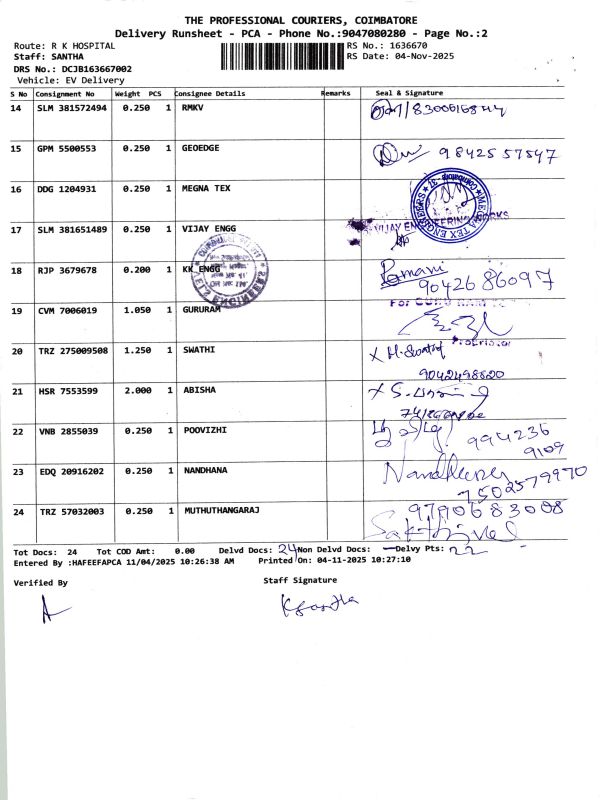 THE PROFESSIONAL COURIERS, COIMBATORE
Delivery Runsheet - PCA - Phone No.:9047080280 - Page No.:2
Route: R K HOSPITAL RS No.: 1636670
Staff: SANTHA RS Date: 04-Nov-2025
DRS No.: DCJB163667002
Vehicle: EV Delivery
S No Consignment No Weight PCS Consignee Details Remarks Seal & Signature
14 SLM 381572494 0.250 1 RMKV
15 GPM 5500553 0.250 1 GEOEDGE 98425 57547
16 DDG 1204931 0.250 1 MEGNA TEX
17 SLM 381651489 0.250 1 VIJAY ENGG VIJAY ENGINEERING WORKS
18 RJP 3679678 0.200 1 KK ENGG Ramani
90426 86097
19 CVM 7006019 1.050 1 GURURAM For GURU RAM
Proprietor
20 TRZ 275009508 1.250 1 SWATHI
9042498820
21 HSR 7553599 2.000 1 ABISHA
22 VNB 2855039 0.250 1 POOVIZHI 994236
9109
23 EDQ 20916202 0.250 1 NANDHANA
7502579970
24 TRZ 57032003 0.250 1 MUTHUTHANGARAJ 9790683008
Sakthivel
Tot Docs: 24 Tot COD Amt: 0.00 Delvd Docs: 24 Non Delvd Docs: — Delvy Pts: 22
Entered By :HAFEEFAPCA 11/04/2025 10:26:38 AM Printed On: 04-11-2025 10:27:10
Verified By Staff Signature
K Santha